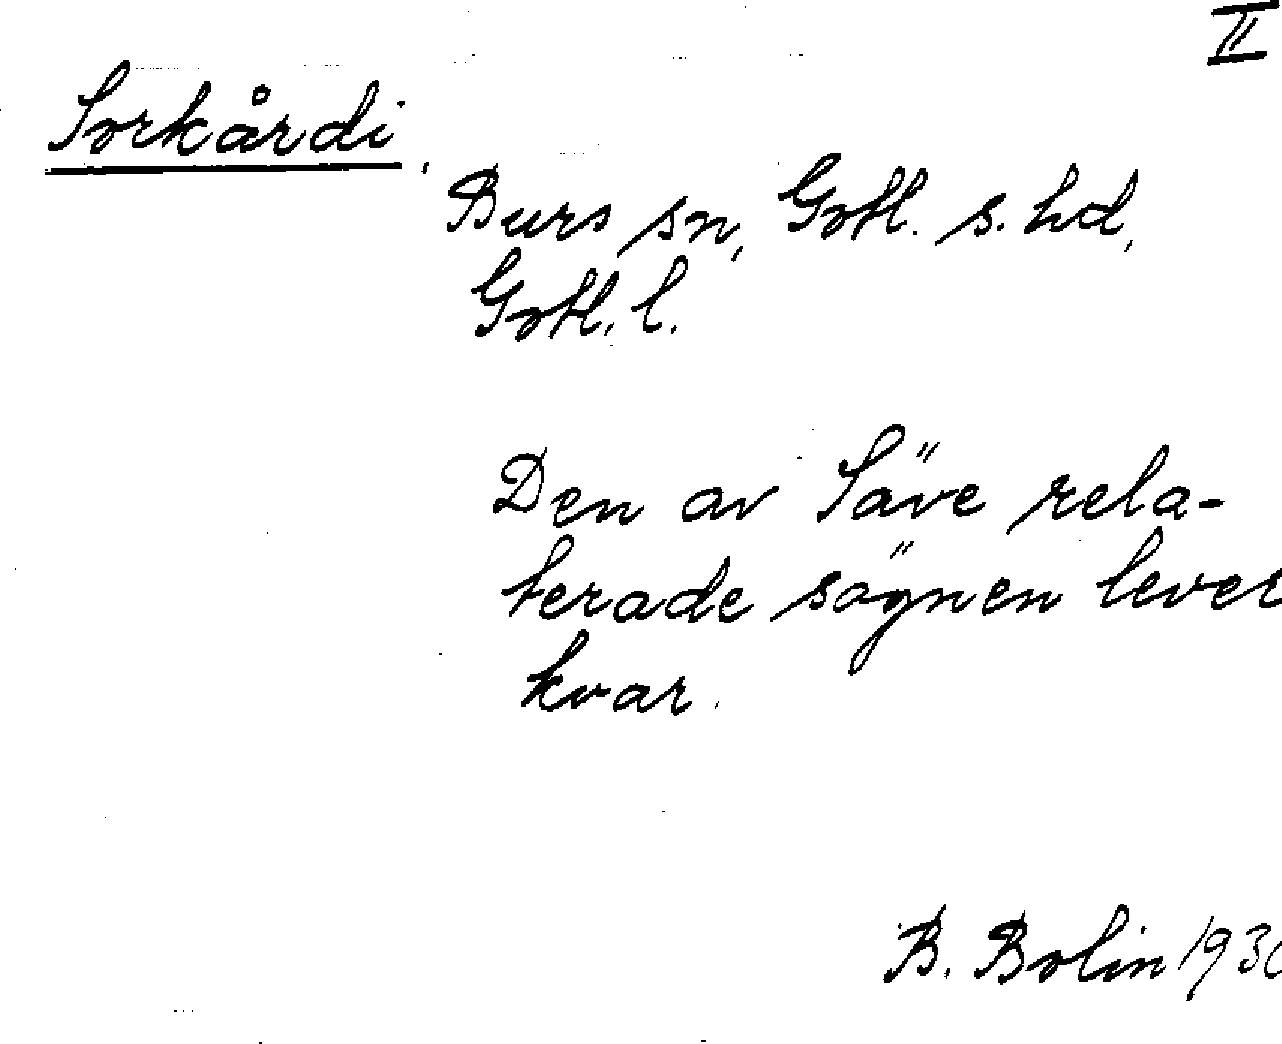 II
Sorkårdi.
Burs sn, Gotl. s. hd,
Gotl. l.
Den av Säve rela-
terade sägnen lever
kvar.
B. Bolin